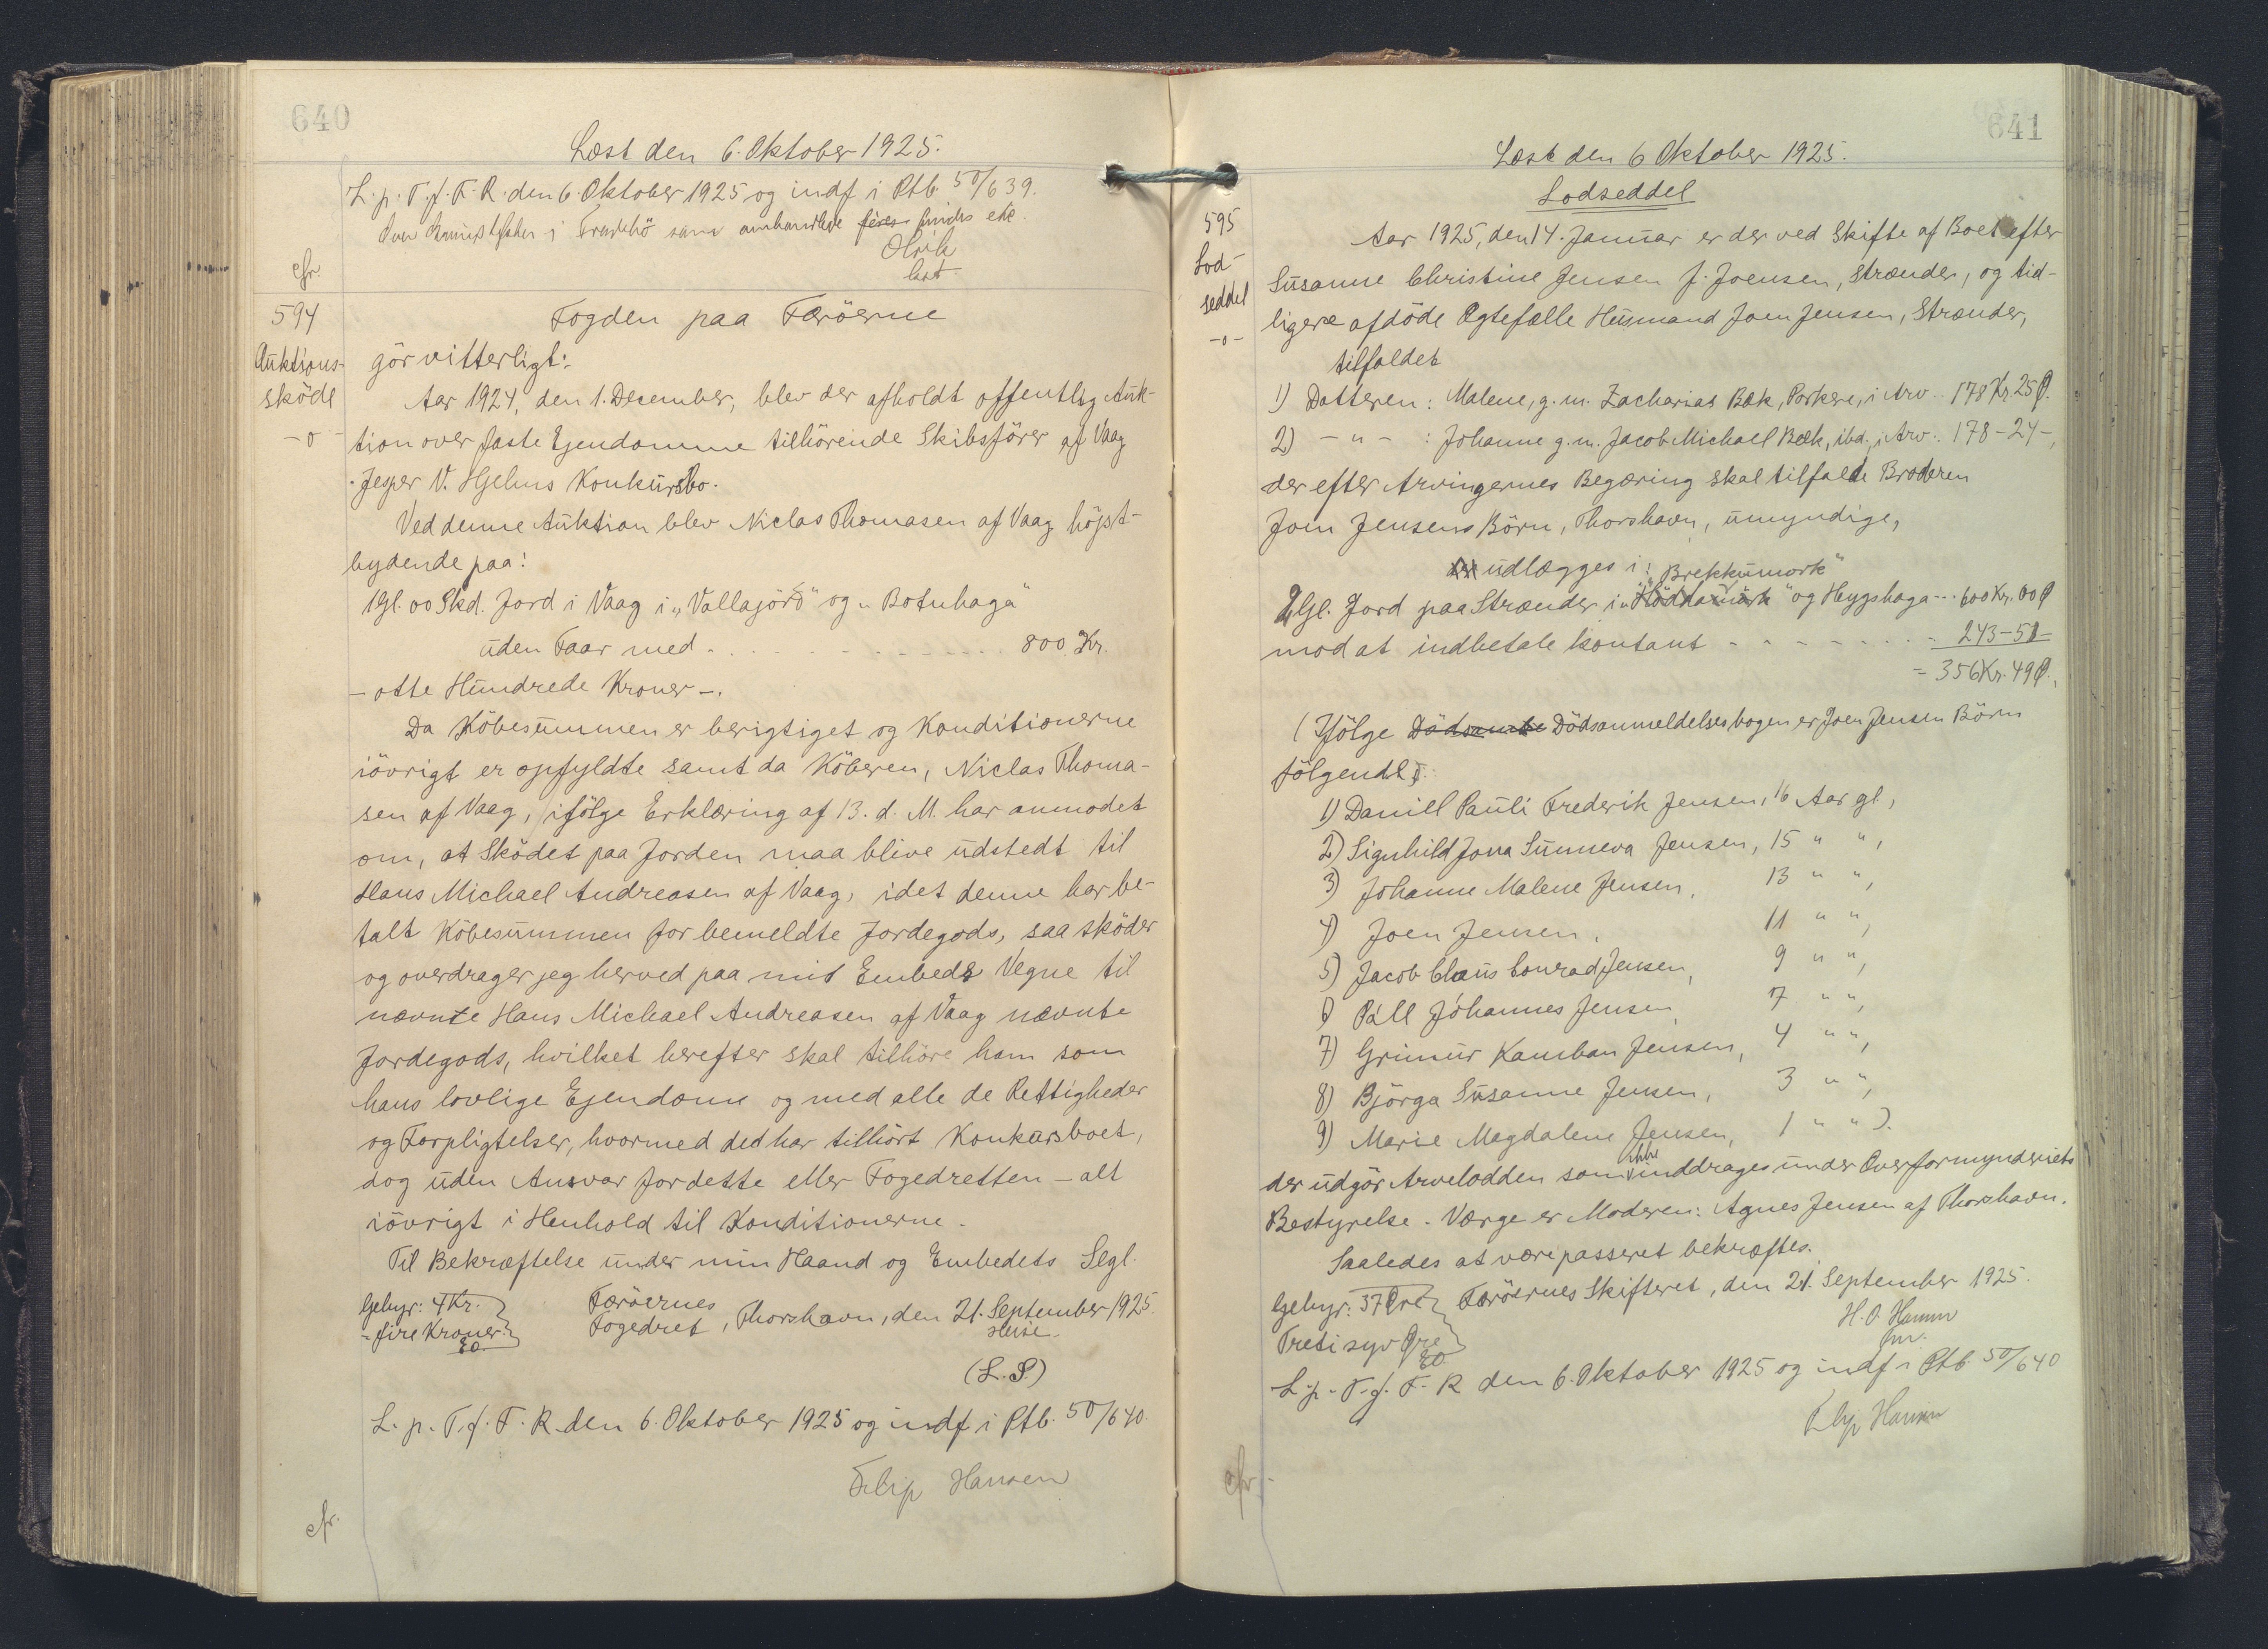 640
Læst den 6. Oktober 1925.
L. p. T. f. F. R. den 6. Oktober 1925 og indf i Ptb. 50/639.
i som omhandlede findes etc.
cfr.
594
Auktions-
sköde
-o-
Fogden paa Færöerne
gör vitterligt:
Aar 1924, den 1. December, blev der afholdt offentlig Auk-
tion over faste Ejendomme tilhörende Skibsförer af Vaag
Jesper V. Hjelms Konkursbo.
Ved denne Auktion blev Niclas Thomasen af Vaag höjst-
bydende paa:
1 Gl. 00 Skd. Jord i Vaag i „Vallajörd" og „Botnhaga"
uden Faar med - - - - - 800 Kr.
- otte Hundrede Kroner -.
Da Köbesummen er berigtiget og Konditionerne
iövrigt er opfyldte samt da Köberen, Niclas Thoma-
sen af Vaag, ifölge Erklæring af 13. d. M. har anmodet
om, at Sködet paa Jorden maa blive udstedt til
Hans Michael Andreasen af Vaag, idet denne har be-
talt Köbesummen for bemeldte Jordegods, saa sköder
og overdrager jeg herved paa mit Embeds Vegne til
nævnte Hans Michael Andreasen af Vaag nævnte
Jordegods, hvilket herefter skal tilhöre ham som
hans lovlige Ejendom og med alle de Rettigheder
og Forpligtelser, hvormed det har tilhört Konkursboet,
dog uden Ansvar for dette eller Fogedretten - alt
iövrigt i Henhold til Konditionerne.
Til Bekræftelse under min Haand og Embedets Segl.
Gebyr: 4 Kr.
- fire Kroner -
EO.
Færöernes
Fogedret, Thorshavn, den 21. September 1925.
Heise.
(L.S.)
L. p. T. f. F. R. den 6. Oktober 1925 og indf i Ptb. 50/640.
Filip Hansen
cfr.
641
Læst den 6 Oktober 1925.
Lodseddel
595
Lod-
seddel
-o-
Aar 1925, den 14. Januar er der ved Skifte af Boet efter
Susanne Christine Jensen f. Joensen, Strænder, og tid-
ligere afdöde Ægtefælle Husmand Joen Jensen, Strænder,
tilfaldet
1) Datteren: Malene, g. m. Zacharias Bæk, Porkere, i Arv.. 178 Kr. 25 Ø.
2) - " - : Johanne g. m. Jacob Michael Bæk, ibd. i Arv.. 178 - 24 -,
der efter Arvingernes Begæring skal tilfalde Broderen
Joen Jensens Börn, Thorshavn, umyndige,
udlægges i: Brekkumørk"
2 Gl. Jord paa Strænder i „ " og Heygshaga - - - 600 Kr. 00 Ø
mod at indbetale kontant - - - - - 243 - 51 -
= 356 Kr. 49 Ø.,
(Ifölge Dödsanmeldelsesbogen er Joen Jensen Börn
fölgende:
1) Daniel Pauli Frederik Jensen, 16 Aar gl,
2) Signhild Jona Sunneva Jensen, 15 " ",
3) Johanne Malene Jensen, 13 " ",
4) Joen Jensen, 11 " ",
5) Jacob Claus Conrad Jensen, 9 " ",
6) Páll Jóhannes Jensen, 7 " ",
7) Grímur Kamban Jensen, 4 " ",
8) Björga Susanne Jensen, 3 " ",
9) Marie Magdalene Jensen, 1 " ").
der udgör Arvelodden som ikke inddrages under Overformynderiets
Bestyrelse. Værge er Moderen: Agnes Jensen af Thorshavn.
Saaledes at være passeret bekræftes.
Gebyr: 37 Øre
Tretisyv Øre
EO
Færöernes Skifteret, den 21. September 1925.
H. O. Hansen
fm.
L. p. T. f. F. R den 6. Oktober 1925 og indf i Ptb. 50/640
Filip Hansen
cfr.